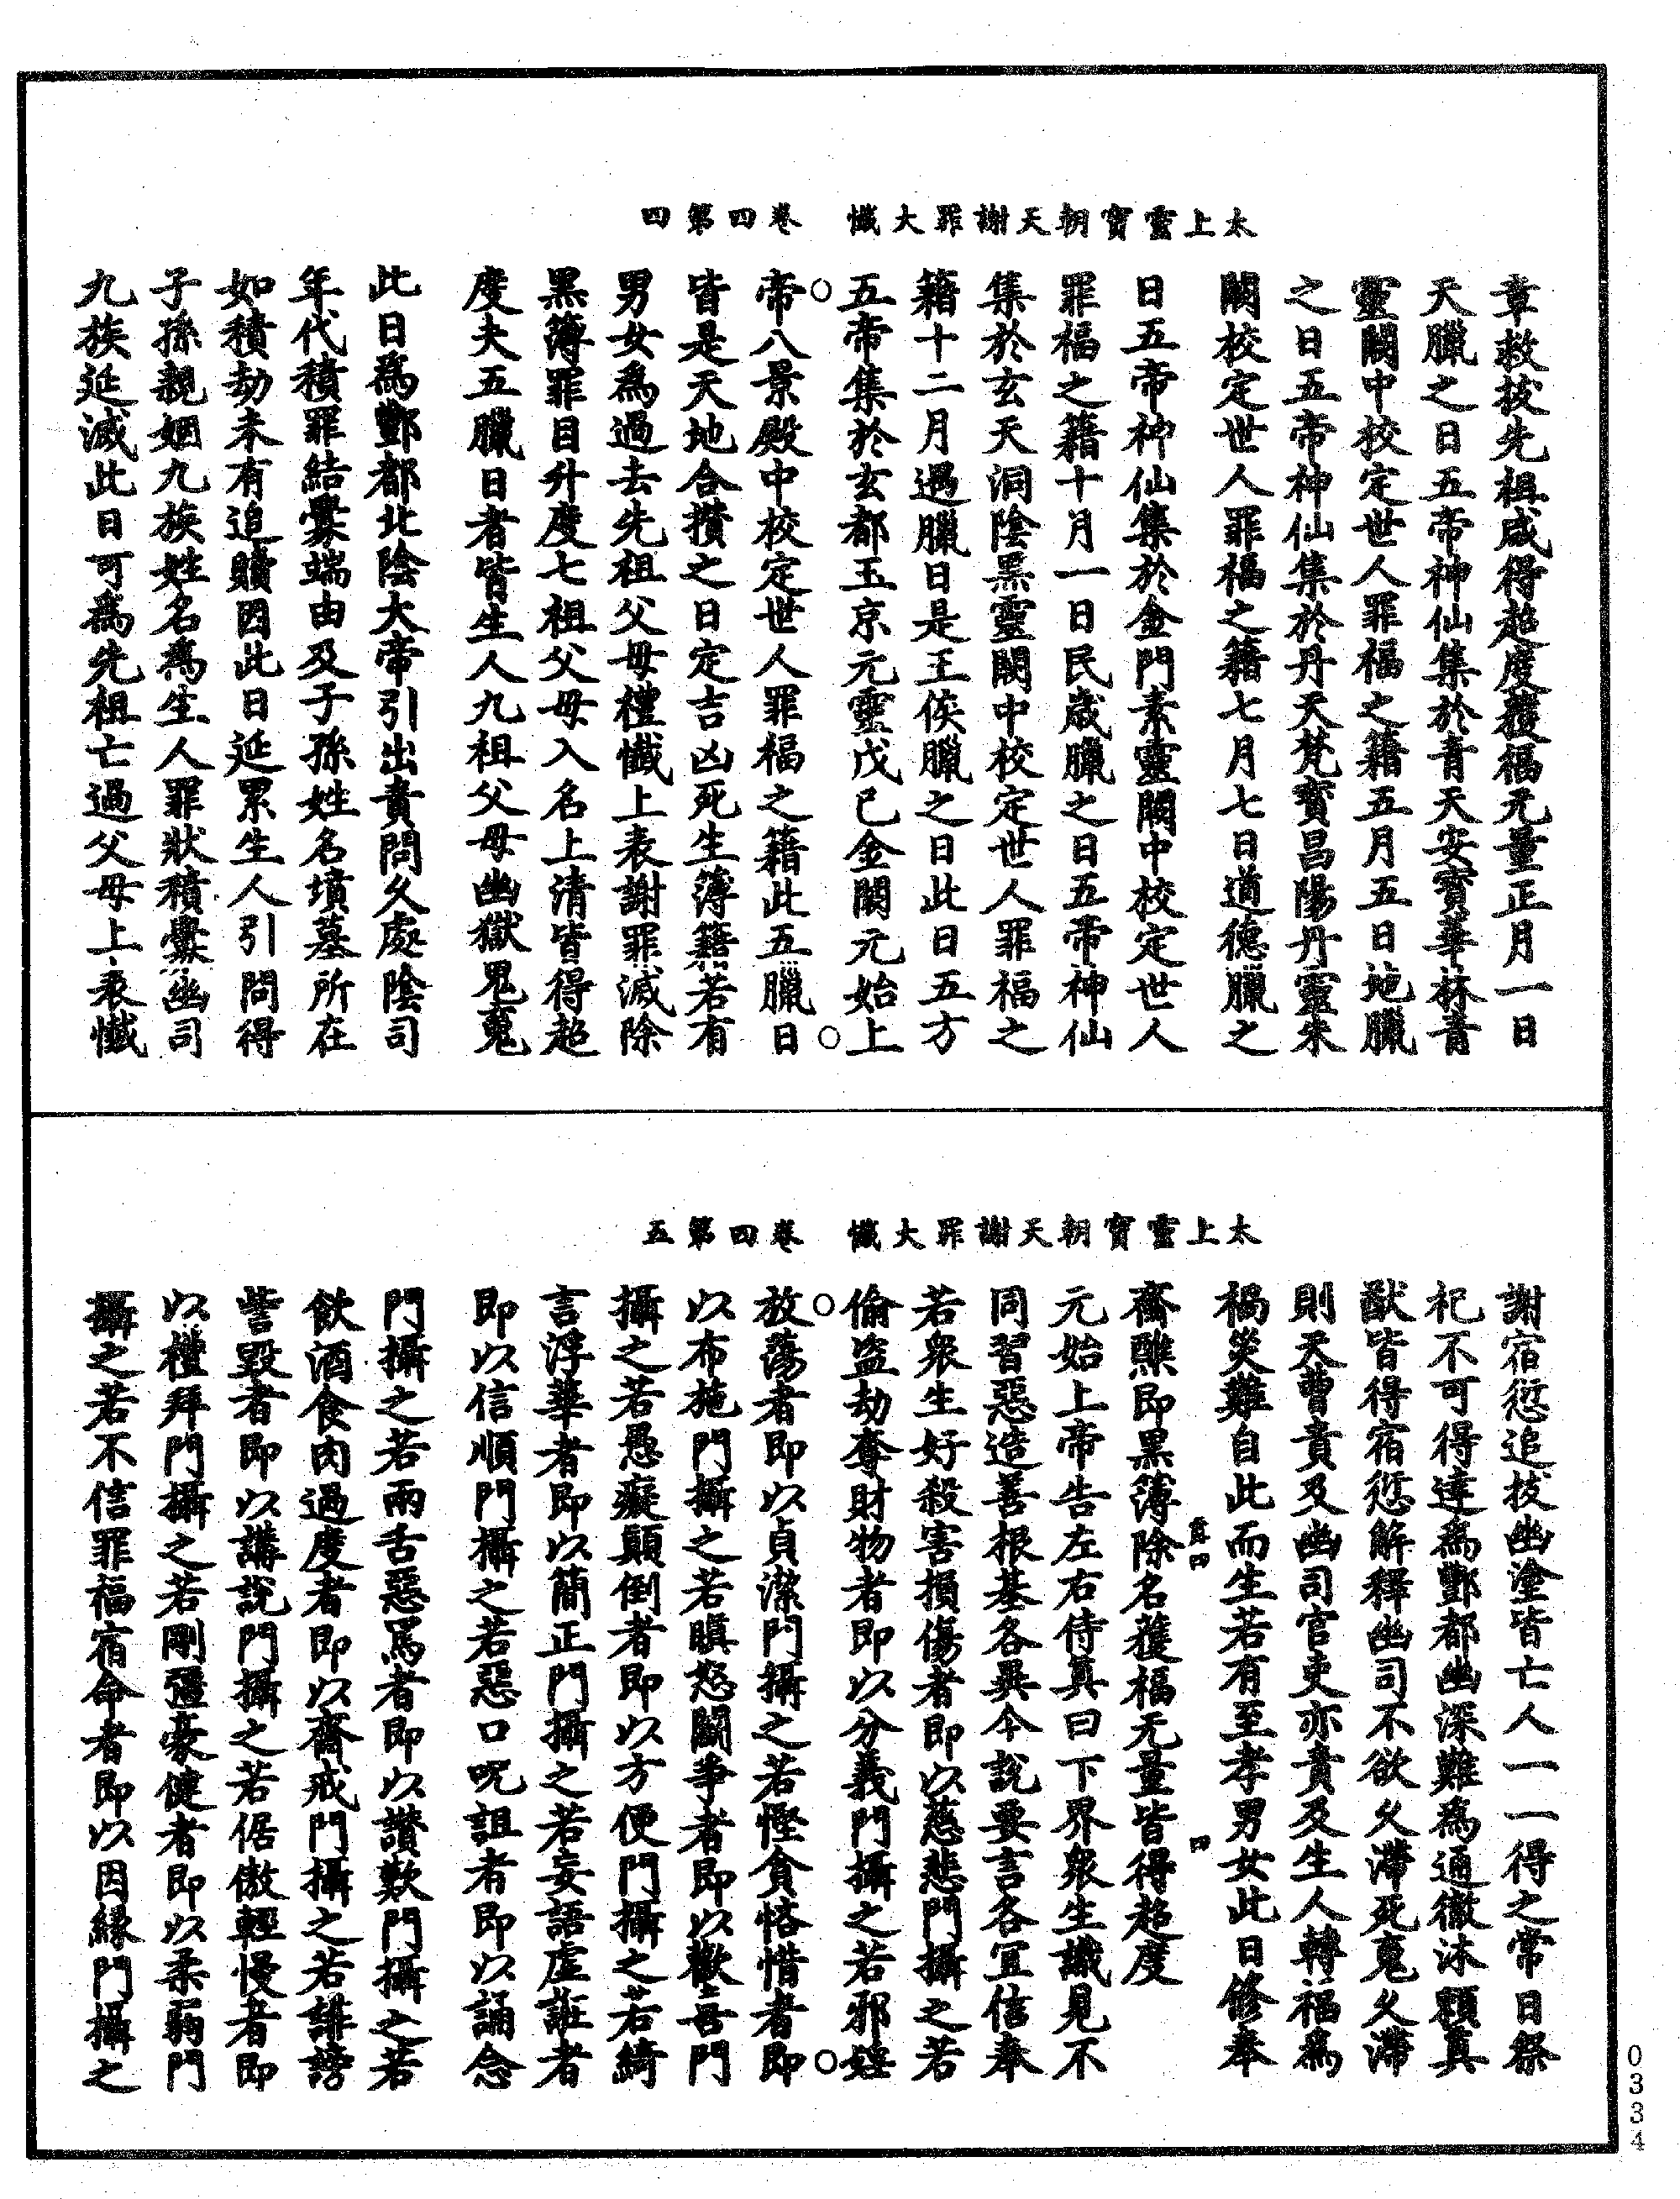 太上靈寶朝天謝罪大懺　卷四第四
章救拔先祖咸得超度獲福无量正月一日
天臘之日五帝神仙集於青天安寶華林青
靈闕中校定世人罪福之籍五月五日地臘
之日五帝神仙集於丹天梵寶昌陽丹靈朱
闕校定世人罪福之籍七月七日道德臘之
日五帝神仙集於金門素靈闕中校定世人
罪福之籍十月一日民歲臘之日五帝神仙
集於玄天洞陰黑靈闕中校定世人罪福之
籍十二月遇臘日是王侯臘之日此日五方
五帝集於玄都玉京元靈戊己金闕元始上
帝八景殿中校定世人罪福之籍此五臘日
皆是天地合攢之日定吉凶死生簿籍若有
男女為過去先祖父母禮懺上表謝罪滅除
黑簿罪目升度七祖父母入名上清皆得超
度夫五臘日者皆生人九祖父母幽獄鬼䰟
此日為酆都北陰大帝引出責問久處陰司
年代積罪結釁端由及子孫姓名墳墓所在
如積劫未有追贖因此日延累生人引問得
子孫親姻九族姓名為生人罪狀積釁幽司
九族延滅此日可為先祖亡過父母上表懺
太上靈寶朝天謝罪大懺　卷四第五
謝宿愆追拔幽塗皆亡人一一得之常日祭
祀不可得達為酆都幽深難為通徹沐頤真
猷皆得宿愆解釋幽司不欲久滯死䰟久滯
則天曹責及幽司官吏亦責及生人轉福為
禍災難自此而生若有至孝男女此日修奉
齋醮即黑簿除名獲福无量皆得超度
元始上帝告左右侍真曰下界眾生識見不
同習惡造善根基各異今說要言各宜信奉
若眾生好殺害損傷者即以慈悲門攝之若
偷盜劫奪財物者即以分義門攝之若邪婬
放蕩者即以貞潔門攝之若慳貪恡惜者即
以布施門攝之若瞋怒鬭爭者即以歡喜門
攝之若愚癡顛倒者即以方便門攝之若綺
言浮華者即以簡正門攝之若妄語虛誑者
即以信順門攝之若惡口呪詛者即以誦念
門攝之若兩舌惡罵者即以讚歎門攝之若
飲酒食肉過度者即以齋戒門攝之若誹謗
訾毀者即以講說門攝之若倨傲輕慢者即
以禮拜門攝之若剛彊豪健者即以柔弱門
攝之若不信罪福宿命者即以因緣門攝之
四
0334